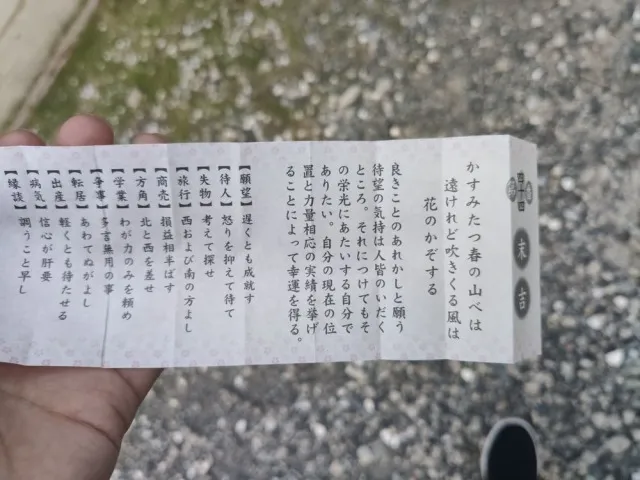 末吉
かすみたつ春の山べは
遠けれど吹きくる風は
花のかぞする
良きことのあれかしと願う
待望の気持は人皆のいだく
ところ。それにつけてもそ
の栄光にあたいする自分で
ありたい。自分の現在の位
置と力量相応の実績を挙げ
ることによって幸運を得る。
【願望】遅くとも成就す
【待人】怒りを抑えて待て
【失物】考えて探せ
【旅行】西および南の方よし
【商売】損益相半ばす
【方角】北と西を差せ
【学業】わが力のみを頼め
【争事】多言無用の事
【転居】あわてぬがよし
【出産】軽くとも待たせる
【病気】信心が肝要
【縁談】調うこと早し